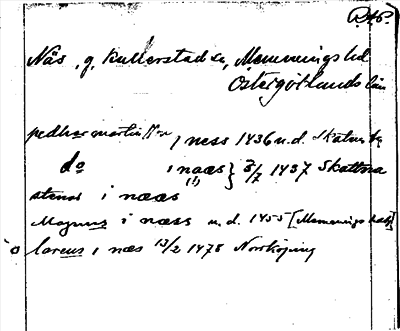 Näs, g, Kullerstad sn, Memmings hd
Östergötlands län
pedher martinsson, i ness 1436 u.d. Skatna
do i naas } 3/7 1437 Skattna
(!)
stenar i næas
Magnus i næss u.d. 1455 [Memmings häst]
o larens i næs 13/2 1478 Norrköping